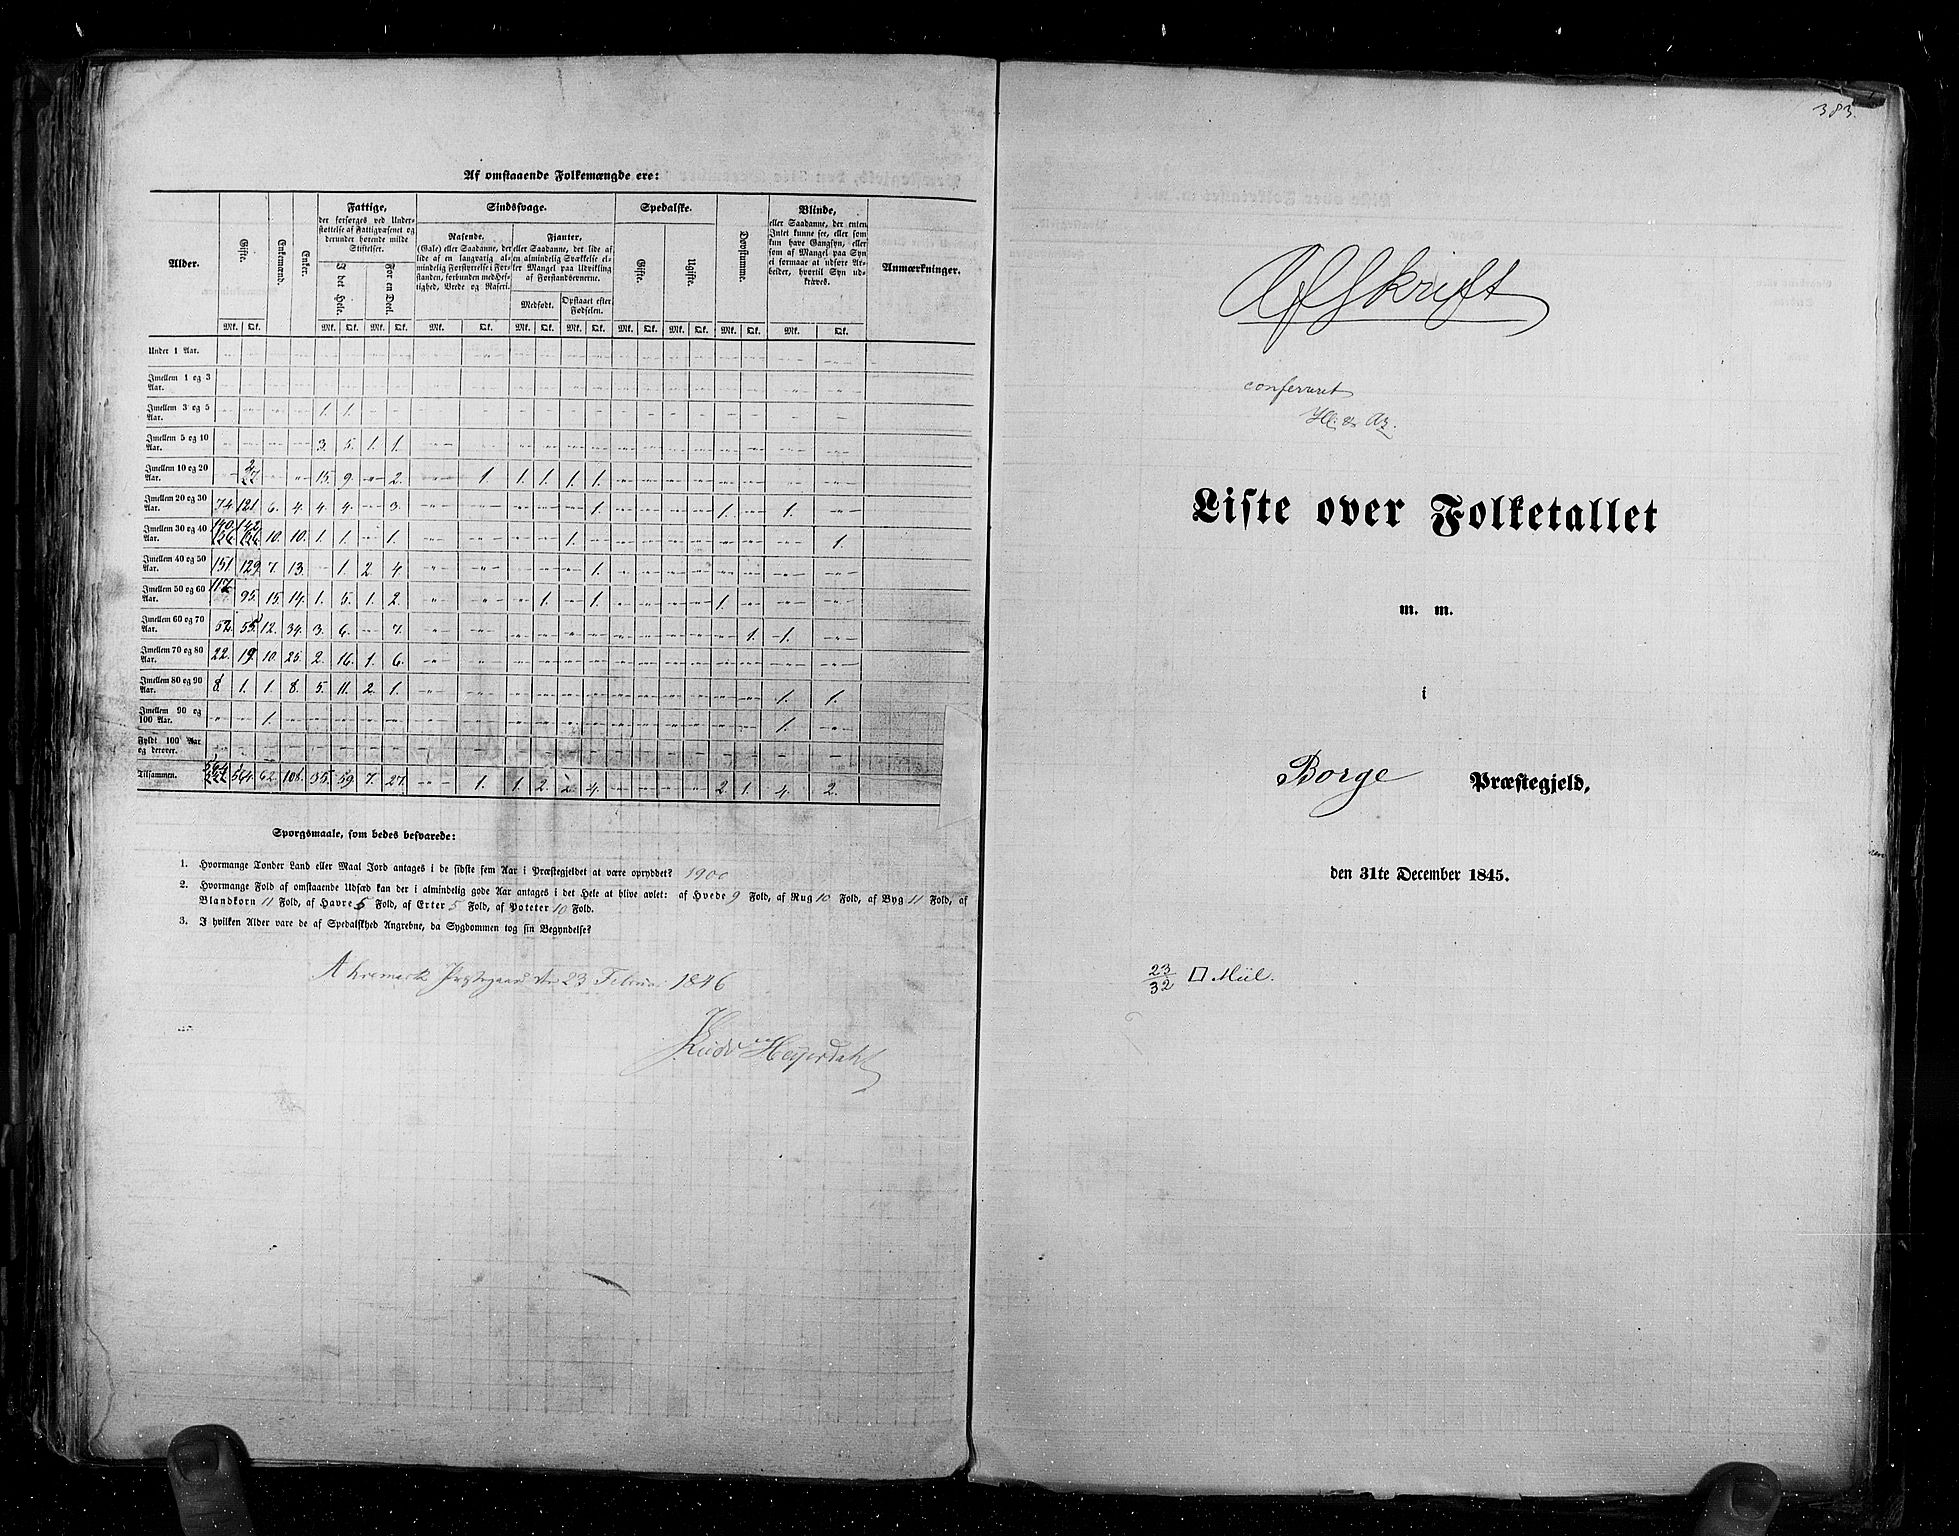 Af omstaaende Folkemængde ere:
Alder. Gifte. Enkemænd. Enker. Fattige, Sindssvage. Spedalske. Døvstumme. Blinde, Anmærkninger.
der forsørges ved Under-
støttelse af Fattigvæsenet og
derunder hørende milde
Stiftelser.
I det Hele. For en Deel.
Rasende.
(Gale) eller Saadanne, der
lide af en langvarig al-
mindelig Forstyrrelse i For-
standen, forbunden med Hef-
tighed, Vrede og Raseri.
Fjanter,
eller Saadanne, der lide af
en almindelig Svækkelse el-
ler Mangel paa Udvikling
af Forstandsevnerne.
Medfødt. Opstaaet efter Fødselen.
Gifte. Ugifte.
eller Saadanne, der enten
Intet kunne see, eller som
kun have Gangsyn, eller
som af Mangel paa Syn
ei formaae at udføre Ar-
beider, hvortil Syn ud-
kræves.
Mk. Qk. Mk. Qk. Mk. Qk. Mk. Qk. Mk. Qk. Mk. Qk. Mk. Qk. Mk. Qk. Mk. Qk. Mk. Qk.
Under 1 Aar.
Imellem 1 og 3 Aar.
Imellem 3 og 5 Aar. 1. 1.
Imellem 5 og 10 Aar. 3. 5. 1. 1.
Imellem 10 og 20 Aar. 15. 9. 2. 1. 1. 1. 1. 1.
Imellem 20 og 30 Aar. 74 121 6. 4. 4. 4. 3. 1. 1. 1.
Imellem 30 og 40 Aar. 140 142 10. 10. 1. 1. 1. 1. 1.
Imellem 40 og 50 Aar. 151 129 7. 13. 1. 2 4 1.
Imellem 50 og 60 Aar. 117 95. 15. 14. 1. 5. 1. 2. 1. 1. 1.
Imellem 60 og 70 Aar. 52. 55. 12. 34. 3. 6. 7. 1. 1.
Imellem 70 og 80 Aar. 22. 19. 10. 25. 2. 16. 1. 6.
Imellem 80 og 90 Aar. 8. 1. 1. 8. 5. 11. 2. 1. 1. 1.
Imellem 90 og 100 Aar. 1. 1.
Fyldt 100 Aar og derover.
Tilsammen. 564 564 62. 108. 35. 59 7. 27. 1. 1. 2. 2. 4. 2. 1. 4. 2.
Spørgsmaale, som bedes besvarede:
1. Hvormange Tønder Land eller Maal Jord antages i de sidste fem Aar i Præstegjeldet at være opryddet? 1900
2. Hvormange Fold af omstaaende Udsæd kan der i almindelig gode Aar antages i det Hele at blive avlet: af Hvede 9 Fold, af Rug 10 Fold, af Byg 11 Fold, af
Blandkorn 11 Fold, af Havre 5 Fold, af Erter 5 Fold, af Poteter 10 Fold.
3. I hvilken Alder vare de af Spedalskhed Angrebne, da Sygdommen tog sin Begyndelse?
Ahremark Præstegaard den 23 Februar 1846
Heyerdahl
383.
Afskrift
confereret
Liste over Folketallet
m. m.
i
Borge Præstegjeld,
den 31te December 1845.
23/32 □ Miil.